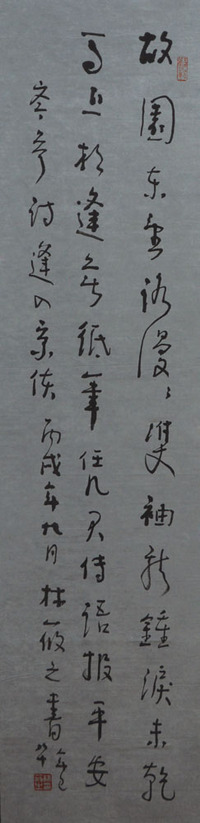 故園东望路漫〻雙袖龙鍾淚未乾
马上相逢无紙筆凭君傳語報平安
岑参诗逢入京使 丙戌年九月 林筱之書